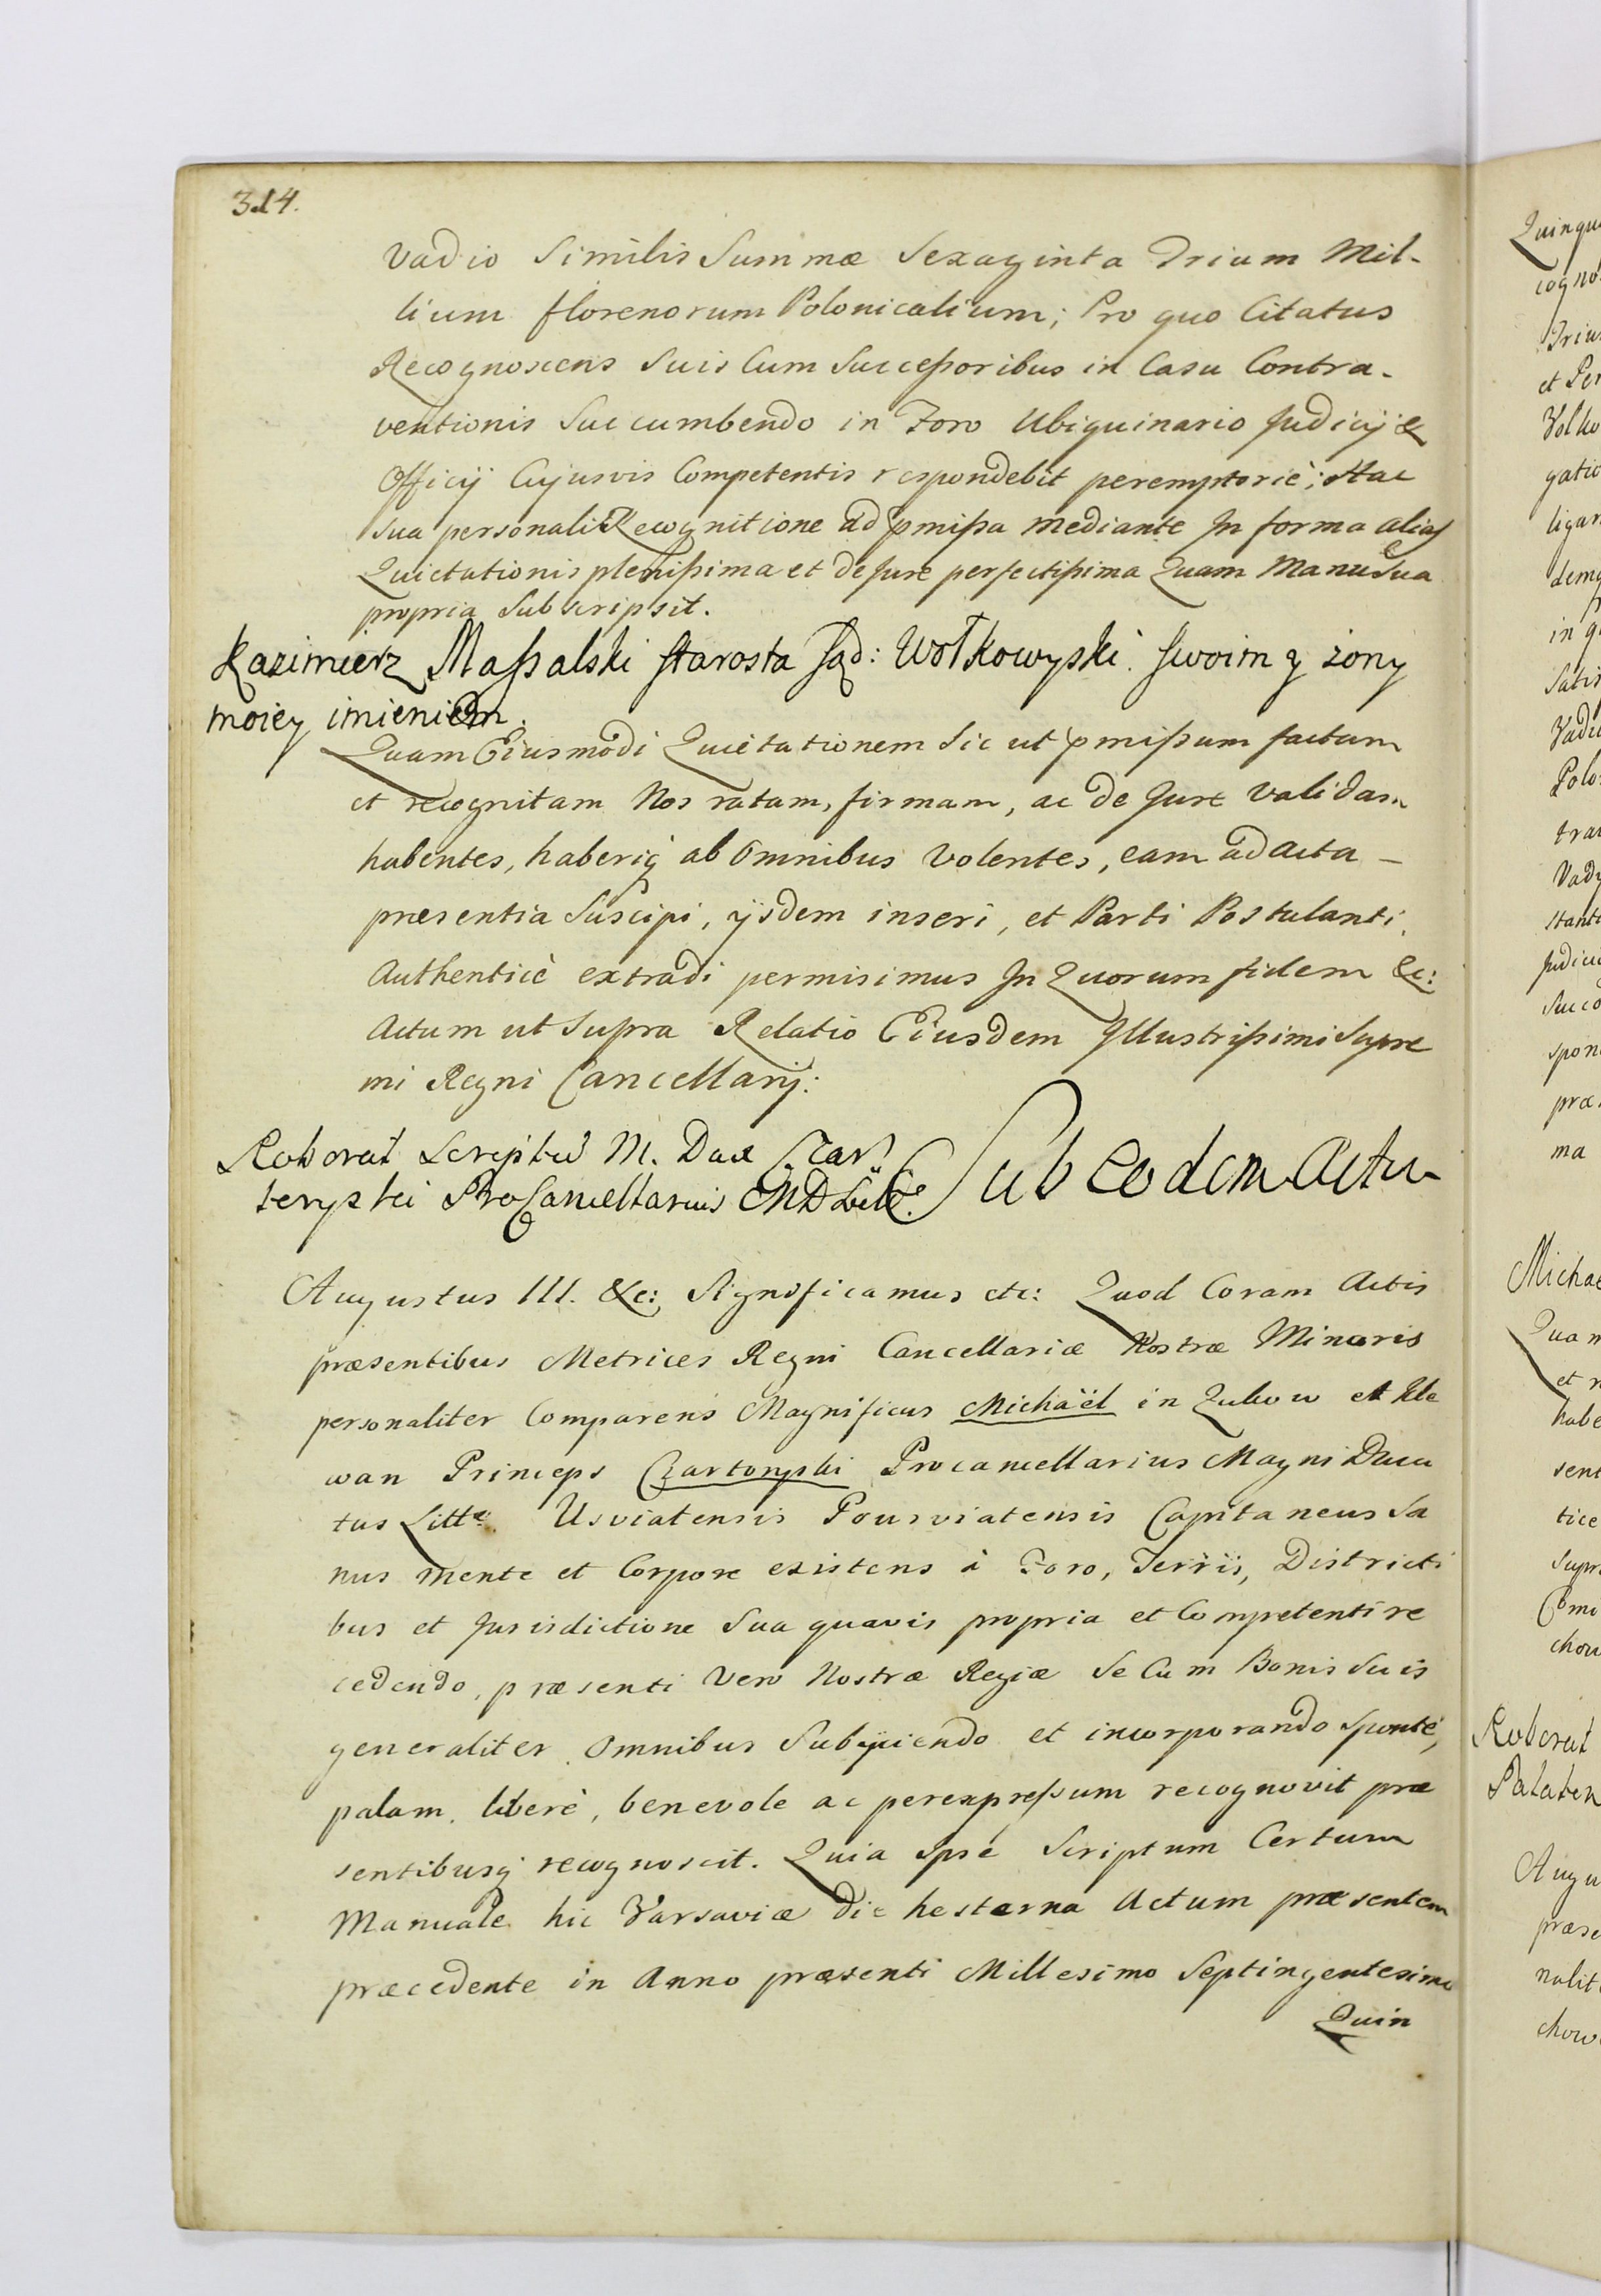 314.
Vadio Similis Summæ Sexaginta Trium Mil-
lium florenorum Polonicalium; Pro quo Citatus
Recognoscens Suis Cum Successoribus in Casu Contra-
ventionis Succumbendo in Foro Ubiquinario Judicij &
Officij Cujusvis Competentis respondebit peremptoriè; Hac
Sua personali Recognitione ad pmissa mediante In forma alias
Quictationis plenissima et de Jure perfectissima Quam Manu Sua
propria Subscripsit.
Kazimierz Massalski starosta sąd: Wołkowyski. swoim y żony
moiey imieniem.
Quam Eiusmodi Quietationem Sic ut pmissum factam
et recognitam Nos ratam, firmam, ac de Jure Validam
habentes, haberiq ab Omnibus Volentes, eam ad acta –
præsentia Suscipi, ijsdem inseri, et Parti Postulanti
Authenticè extradi permisimus In Quorum fidem &c:
Actum ut Supra Relatio Eiusdem Illustrissimi Supre
mi Regni Cancellarij:
Roborat Scriptū M. Dux Czar
toryski ProCancellarius MD
Sub eodem Actu
Augustus III. &c: Significamus etc: Quod Coram Actis
præsentibus Metrices Regni Cancellariæ Nostræ Minoris
personaliter Comparens Magnificus Michaël in Zukow et Kle
wan Princeps Czartoryski Procancellarius Magni Duca
tus Litt. Usviatensis Pousviatensis Capitaneus Sa
nus mente et Corpore existens à Foro, Terris, Districti
bus et Jurisdictione Sua quavis propria et Competenti re
cedendo, præsenti Vero Nostræ Regiæ Se Cum Bonis Suis
generaliter Omnibus Subijciendo et incorporando Spontè,
palam, liberè, benevole ac perexpressum recognovit præ
sentibusq recognoscit. Quia Ipse Scriptum Certum
Manuale hic Varsaviæ die hesterna Actum præsentem
præcedente in Anno præsenti Millesimo Septingentesimo
Quin